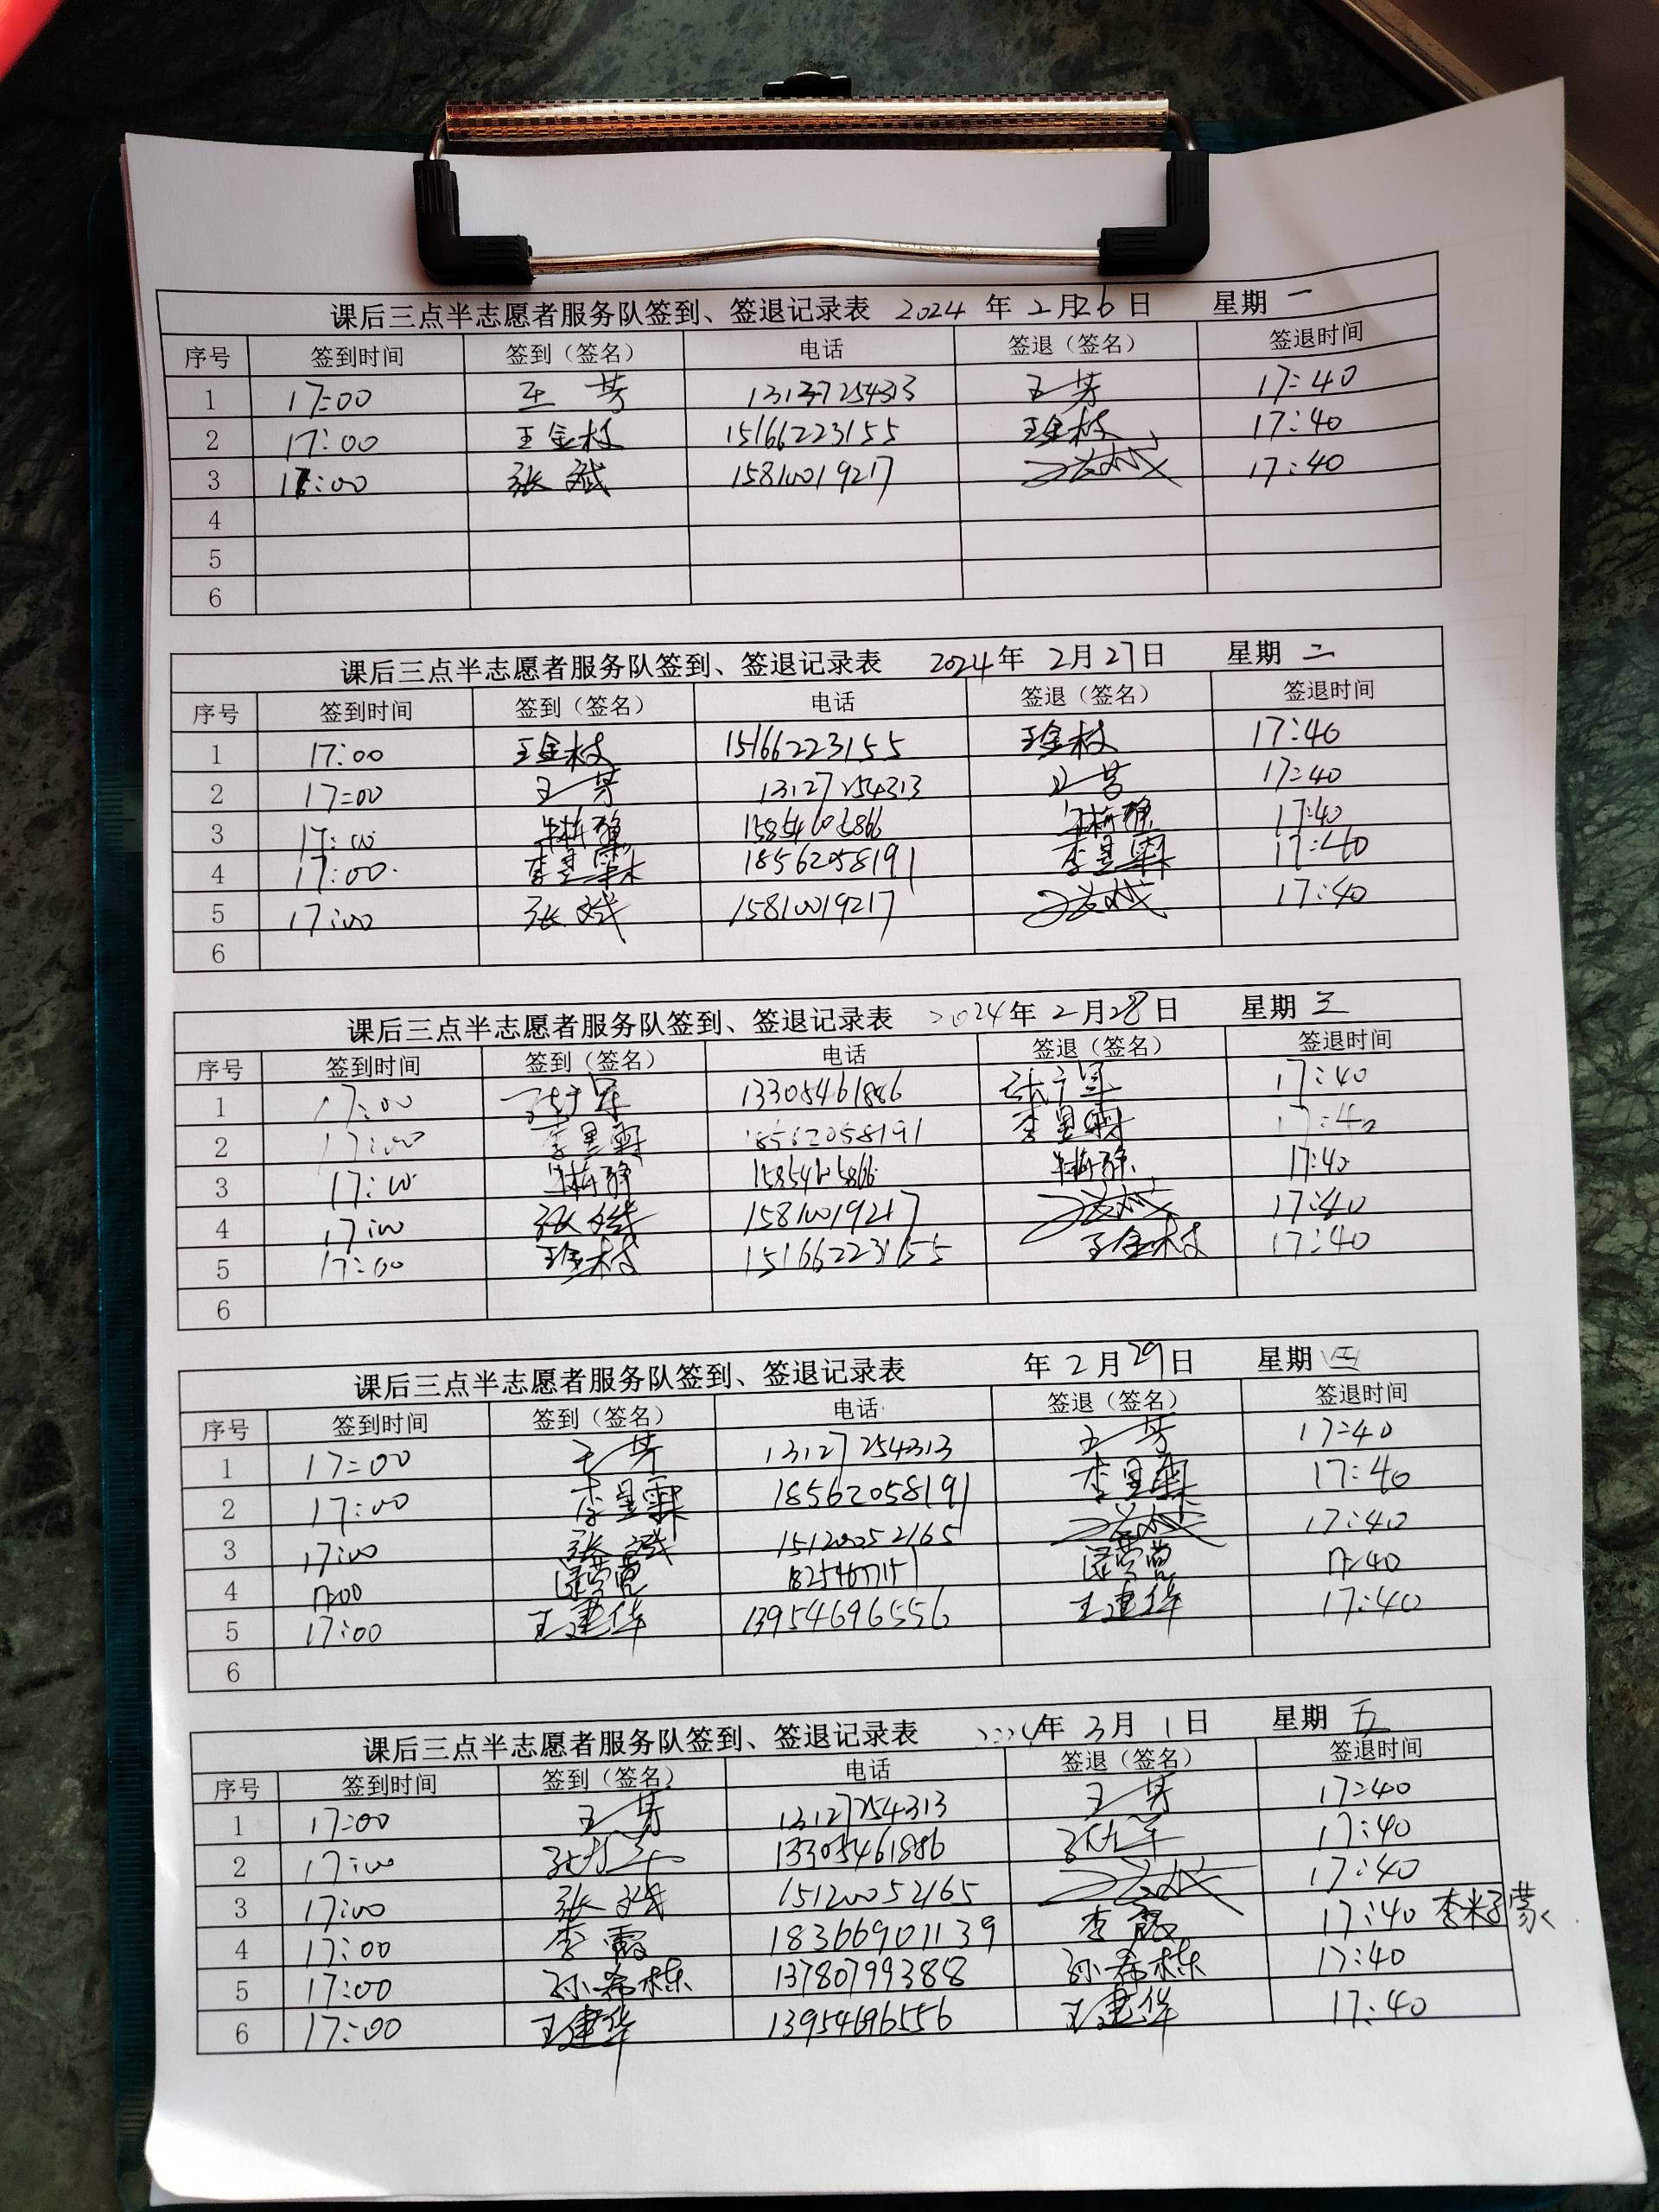 课后三点半志愿者服务队签到、签退记录表 2024 年 2 月 26 日 星期 一
序号 签到时间 签到（签名） 电话 签退（签名） 签退时间
1 17:00 王芳 13127254313 王芳 17:40
2 17:00 王金枝 15166223155 王金枝 17:40
3 17:00 张斌 15810019217 17:40
4
5
6
课后三点半志愿者服务队签到、签退记录表 2024 年 2 月 27 日 星期 二
序号 签到时间 签到（签名） 电话 签退（签名） 签退时间
1 17:00 王金枝 15166223155 王金枝 17:40
2 17:00 王芳 13127254313 王芳 17:40
3 17:00 17:40
4 17:00 李昱霖 18562058191 李昱霖 17:40
5 17:00 张斌 15810019217 17:40
6
课后三点半志愿者服务队签到、签退记录表 2024 年 2 月 28 日 星期 三
序号 签到时间 签到（签名） 电话 签退（签名） 签退时间
1 17:00 13305461886 17:40
2 17:00 李昱霖 18562058191 李昱霖 17:40
3 17:00 17:40
4 17:00 张斌 15810019217 17:40
5 17:00 王金枝 15166223155 王金枝 17:40
6
课后三点半志愿者服务队签到、签退记录表 年 2 月 29 日 星期 四
序号 签到时间 签到（签名） 电话 签退（签名） 签退时间
1 17:00 王芳 13127254313 王芳 17:40
2 17:00 李昱霖 18562058191 李昱霖 17:40
3 17:00 张斌 15120052165 17:40
4 17:00 17:40
5 17:00 王建华 13954696556 王建华 17:40
6
课后三点半志愿者服务队签到、签退记录表 2024 年 3 月 1 日 星期 五
序号 签到时间 签到（签名） 电话 签退（签名） 签退时间
1 17:00 王芳 13127254313 王芳 17:40
2 17:00 13305461886 17:40
3 17:00 张斌 15120052165 17:40
4 17:00 李霞 18366901139 李霞 17:40 李米子蒙
5 17:00 孙希栋 13780799388 孙希栋 17:40
6 17:00 王建华 13954696556 王建华 17:40